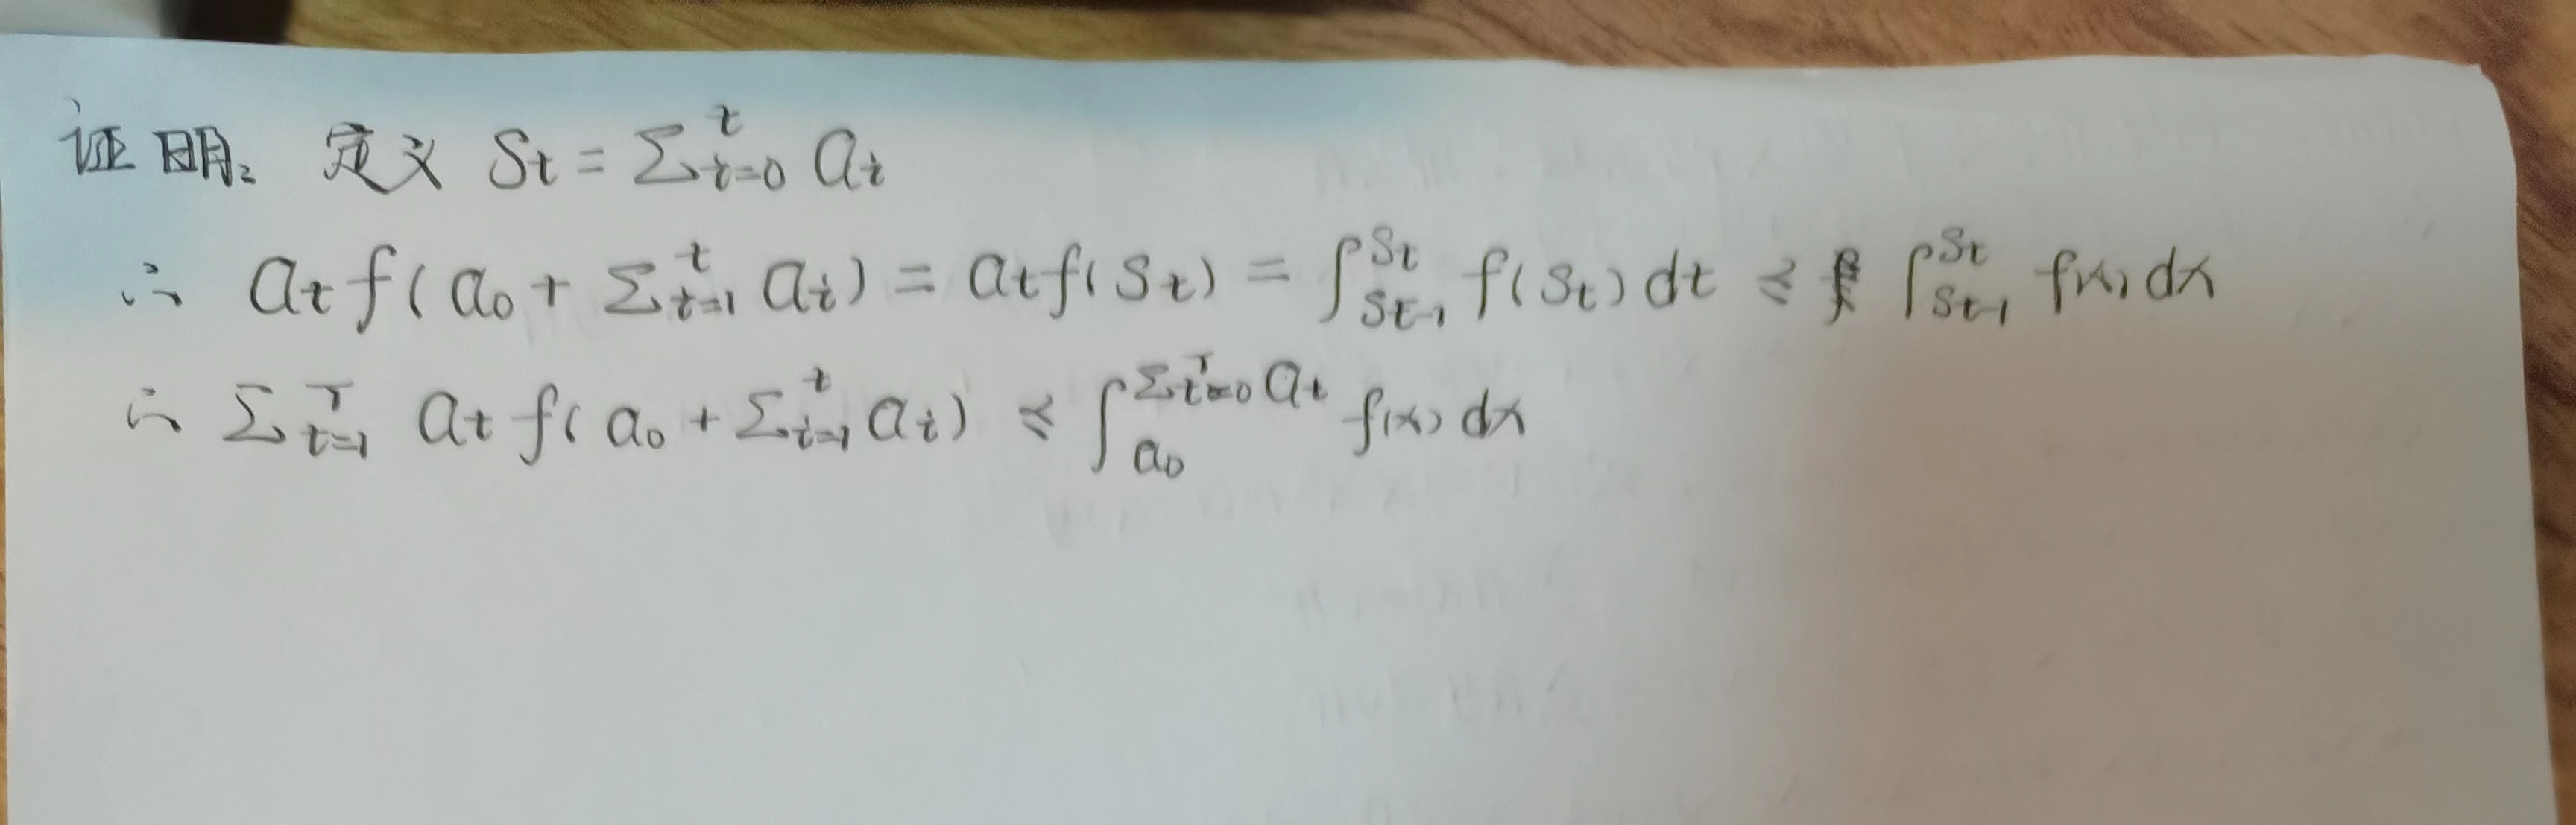 证明: 定义 St = Σ_{i=0}^{t} ai
∴ at f(a0 + Σ_{i=1}^{t} ai) = at f(St) = ∫_{St-1}^{St} f(St) dt ≤ ∫_{St-1}^{St} f(x) dx
∴ Σ_{t=1}^{T} at f(a0 + Σ_{i=1}^{t} ai) ≤ ∫_{a0}^{Σ_{t=0}^{T} at} f(x) dx